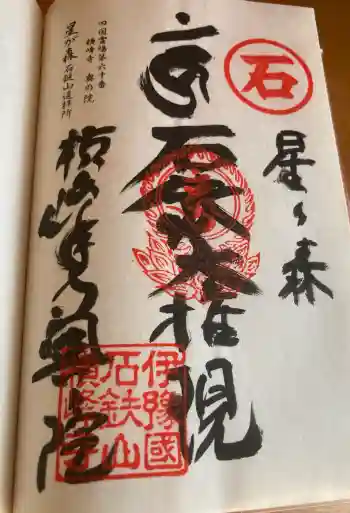 石
星ヶ森
石鈇大権現
横峰寺奥の院
四国霊場第六十番
横峰寺 奥の院
星が森石鎚山遥拝所
伊豫國
石鈇山
横峰寺